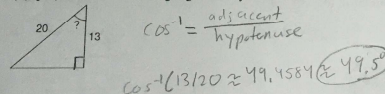 20
?
13
cos⁻¹ = adjacent/hypotenuse
cos⁻¹(13/20 ≈ 49,4584 ≈ 49,5°